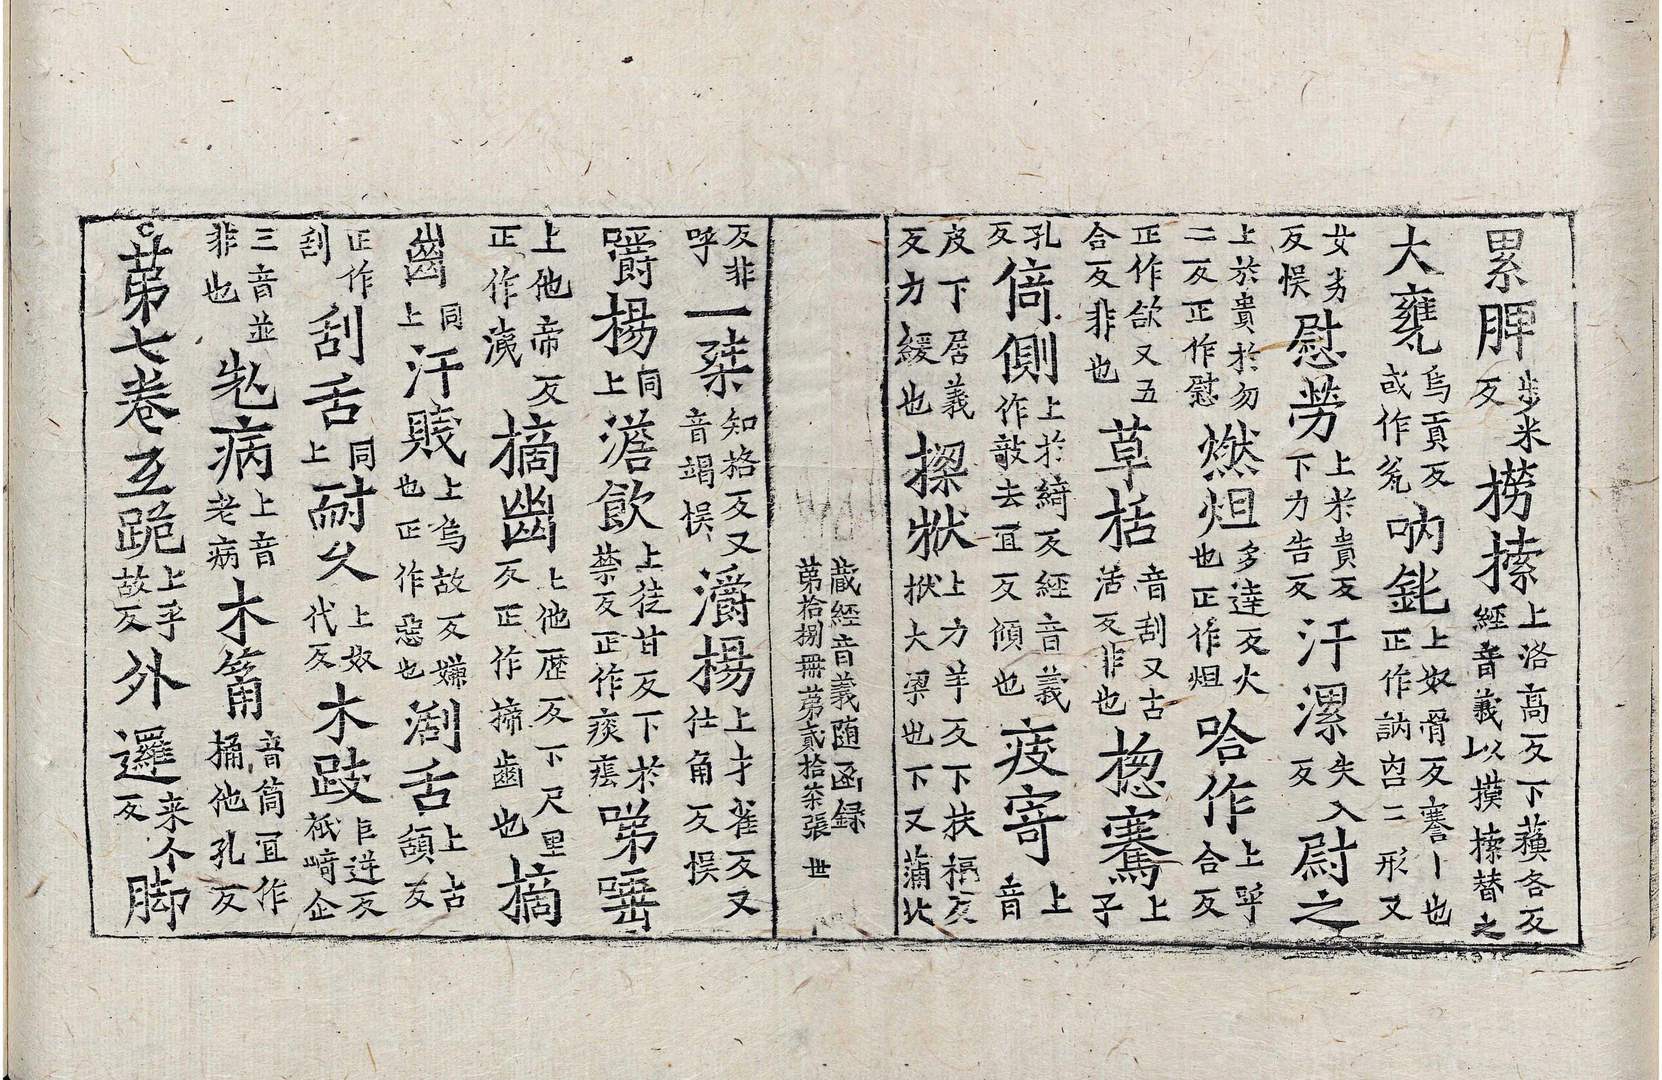 累䏶步米反撈𢱢上洛高反下蘓各反経音義以摸𢱢替之
大甕烏貢反或作瓮吶㖠上奴骨反謇丨也正作訥㕯二形又
女劣反悮慰勞上於貴反下力告反汙漯失入反尉之
上於貴於勿二反正作慰燃炟多達反火也正作炟哈作上呼合反
正作欱又五合反非也草栝音刮又古活反非也㧾騫上子
孔反𠋣側上於綺反経音義作攲去冝反傾也疲寄上音
皮下居義反力緩也𢮎𤝕上力羊反下扶福反𢮎大梁也下又蒲北
藏經音義随函録
第拾捌冊第貳拾柒張 世
反非呼一桀知格反又音竭悮灂楊上才雀反又仕角反悮
嚼楊同上澹飲上徒甘反下於禁反正作痰䕃㖒㗌
上他帝反正作洟摘齒上他歴反下尺里反正作揥齒也摘
齒同上汙賎上烏故反又嫌也正作惡也㓮舌上古頟反
正作刮刮舌同上耐久上奴代反木跂巨逆反袛﨑企
三音並非也𠒋病上音老病木筩音筒冝作桶他孔反
第七卷 互跪上乎故反外邏来个反脚